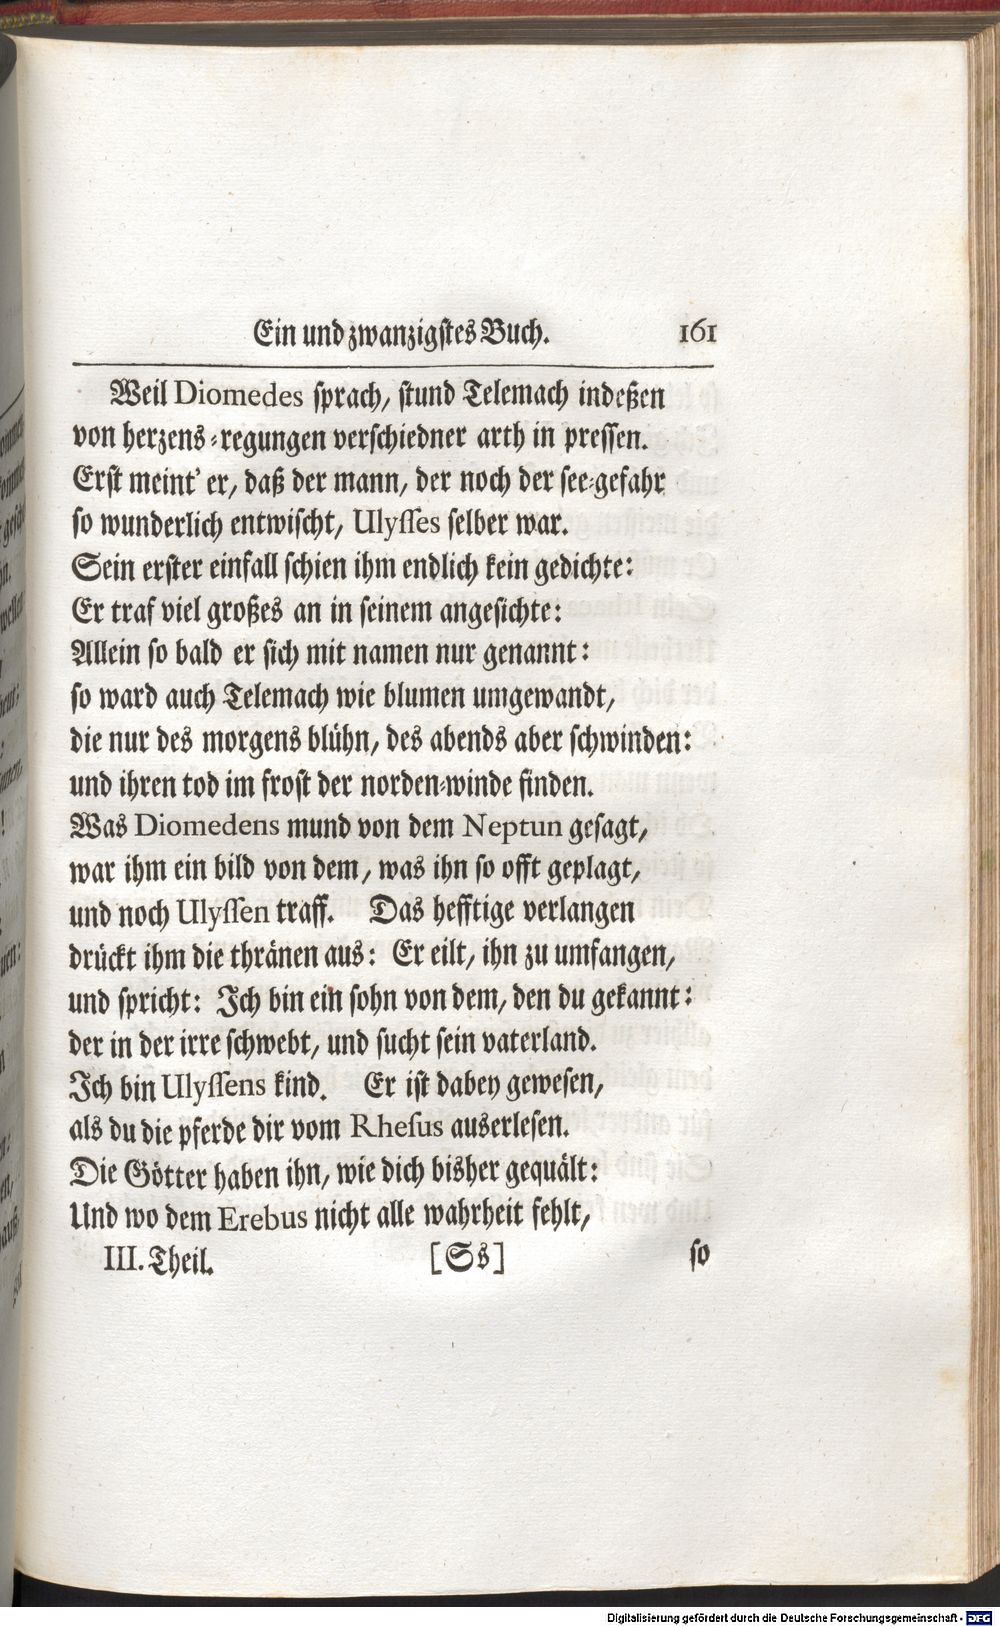 Ein und zwanzigstes Buch. 161
Weil Diomedes sprach, stund Telemach indeßen
von herzens-regungen verschiedner arth in pressen.
Erst meint' er, daß der mann, der noch der see-gefahr
so wunderlich entwischt, Ulysses selber war.
Sein erster einfall schien ihm endlich kein gedichte:
Er traf viel großes an in seinem angesichte:
Allein so bald er sich mit namen nur genannt:
so ward auch Telemach wie blumen umgewandt,
die nur des morgens blühn, des abends aber schwinden:
und ihren tod im frost der norden-winde finden.
Was Diomedens mund von dem Neptun gesagt,
war ihm ein bild von dem, was ihn so offt geplagt,
und noch Ulyssen traff. Das hefftige verlangen
drückt ihm die thränen aus: Er eilt, ihn zu umfangen,
und spricht: Ich bin ein sohn von dem, den du gekannt:
der in der irre schwebt, und sucht sein vaterland.
Ich bin Ulyssens kind. Er ist dabey gewesen,
als du die pferde dir vom Rhesus auserlesen.
Die Götter haben ihn, wie dich bisher gequält:
Und wo dem Erebus nicht alle wahrheit fehlt,
III. Theil. [Ss] so
Digitalisierung gefördert durch die Deutsche Forschungsgemeinschaft - DFG